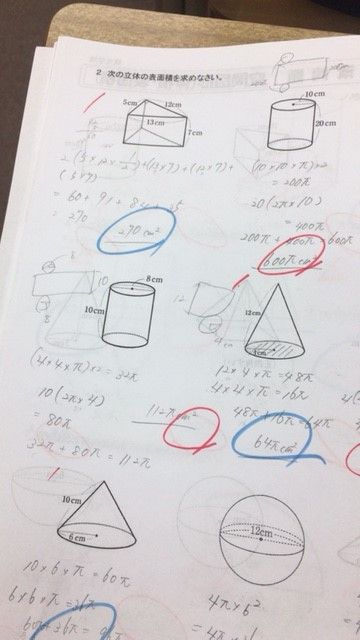 2 次の立体の表面積を求めなさい。
5cm
12cm
13cm
7cm
10cm
20cm
= 270
270cm²
(10×10×π)×2
= 200π
20(2π×10)
= 400π
200π + 400π = 600π
600πcm²
8
10
8
8cm
10cm
(4×4×π)×2 = 32π
10(2π×4)
= 80π
32π + 80π = 112π
112πcm²
12
4cm
12cm
4cm
12×4×π = 48π
4×4×π = 16π
48π + 16π = 64π
64πcm²
10cm
6cm
10×6×π = 60π
6×6×π = 36π
60π + 36π =
12cm
4π×6²